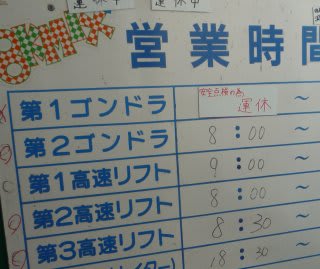 運休中
運休中
営業時間
第1ゴンドラ 安全点検の為、 運休 ～
第2ゴンドラ 8:00 ～
第1高速リフト 9:00 ～
第2高速リフト 8:00
第3高速リフト 8:30 ～
8:30